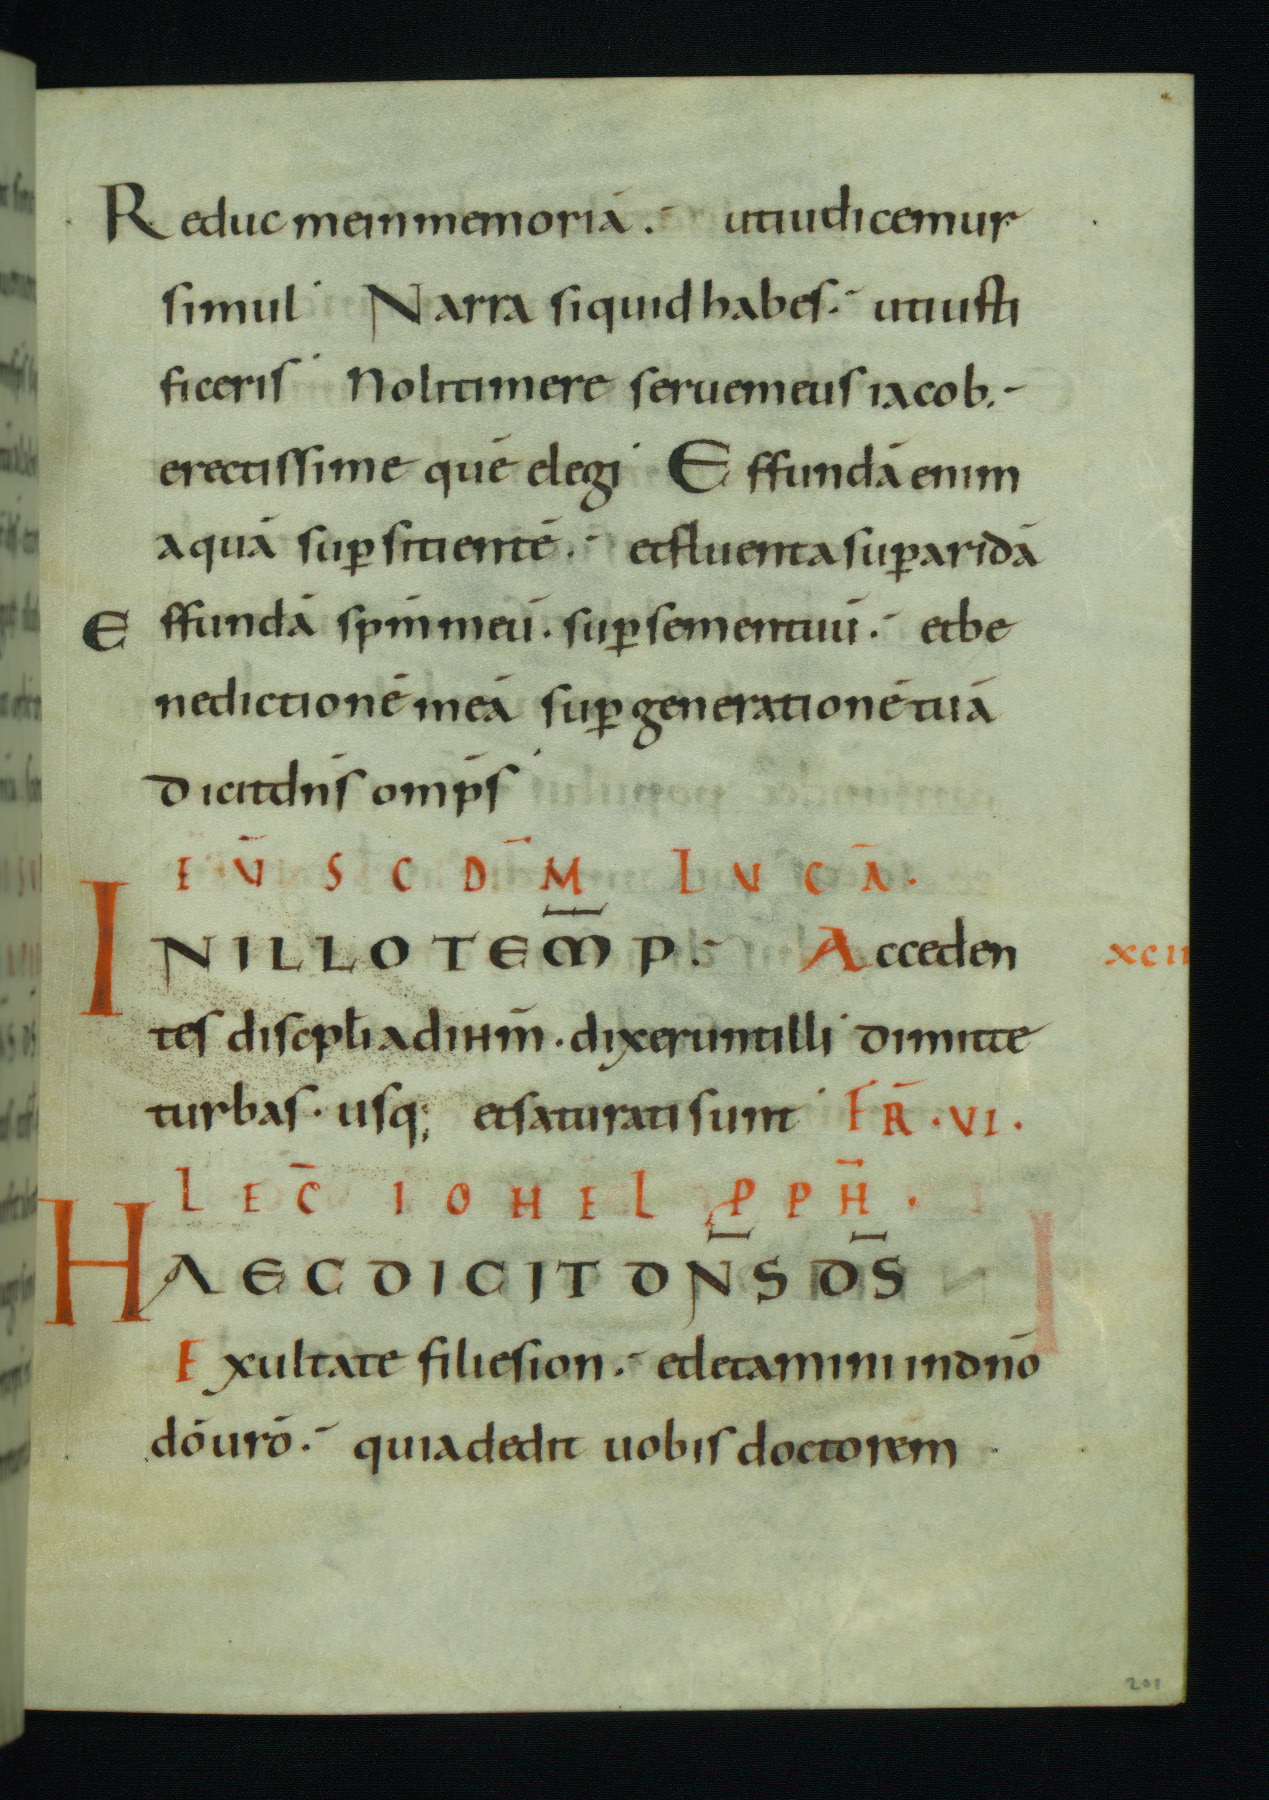 Reduc me in memoriā. ut iudicemur
simul Narra si quid habes. ut iusti
ficeris Noli timere serue meus iacob.
erectissime quē elegi Effundā enim
aquā sup sitientē. et fluenta sup aridā
Effundā spm̄ meū. sup semen tuū. et be
nedictionē meā sup generationē tuā
dicit dn̄s omp̄s
EV̄ SCDM̄ LVCĀ.
IN ILLO TEM̄P. Acceden xcii
tes discipli ad ihm̄. dixerunt illi dimitte
turbas. usq; et saturati sunt FR̄. VI.
LEC̄ IOHEL PPH̄.
HAEC DICIT DN̄S DS̄
Exultate filie sion. et letamini in dn̄o
dō urō. quia dedit uobis doctorem
201